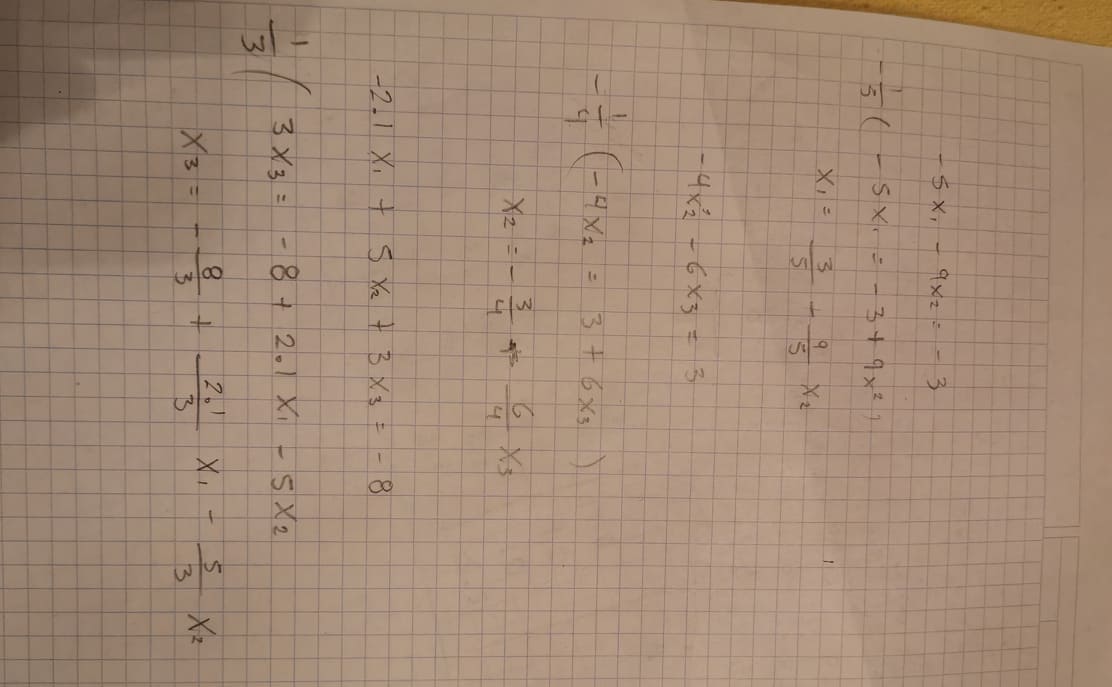 -5x₁ - 9x₂ = -3
-1/5 ( -5x₁ = -3 + 9x₂ )
x₁ = 3/5 + 9/5 x₂
-4x₂ - 6x₃ = 3
-1/4 ( -4x₂ = 3 + 6x₃ )
x₂ = - 3/4 + 6/4 x₃
-2.1 x₁ + 5x₂ + 3x₃ = -8
1/3 ( 3x₃ = -8 + 2.1 x₁ - 5x₂
x₃ = - 8/3 + 2.1/3 x₁ - 5/3 x₂